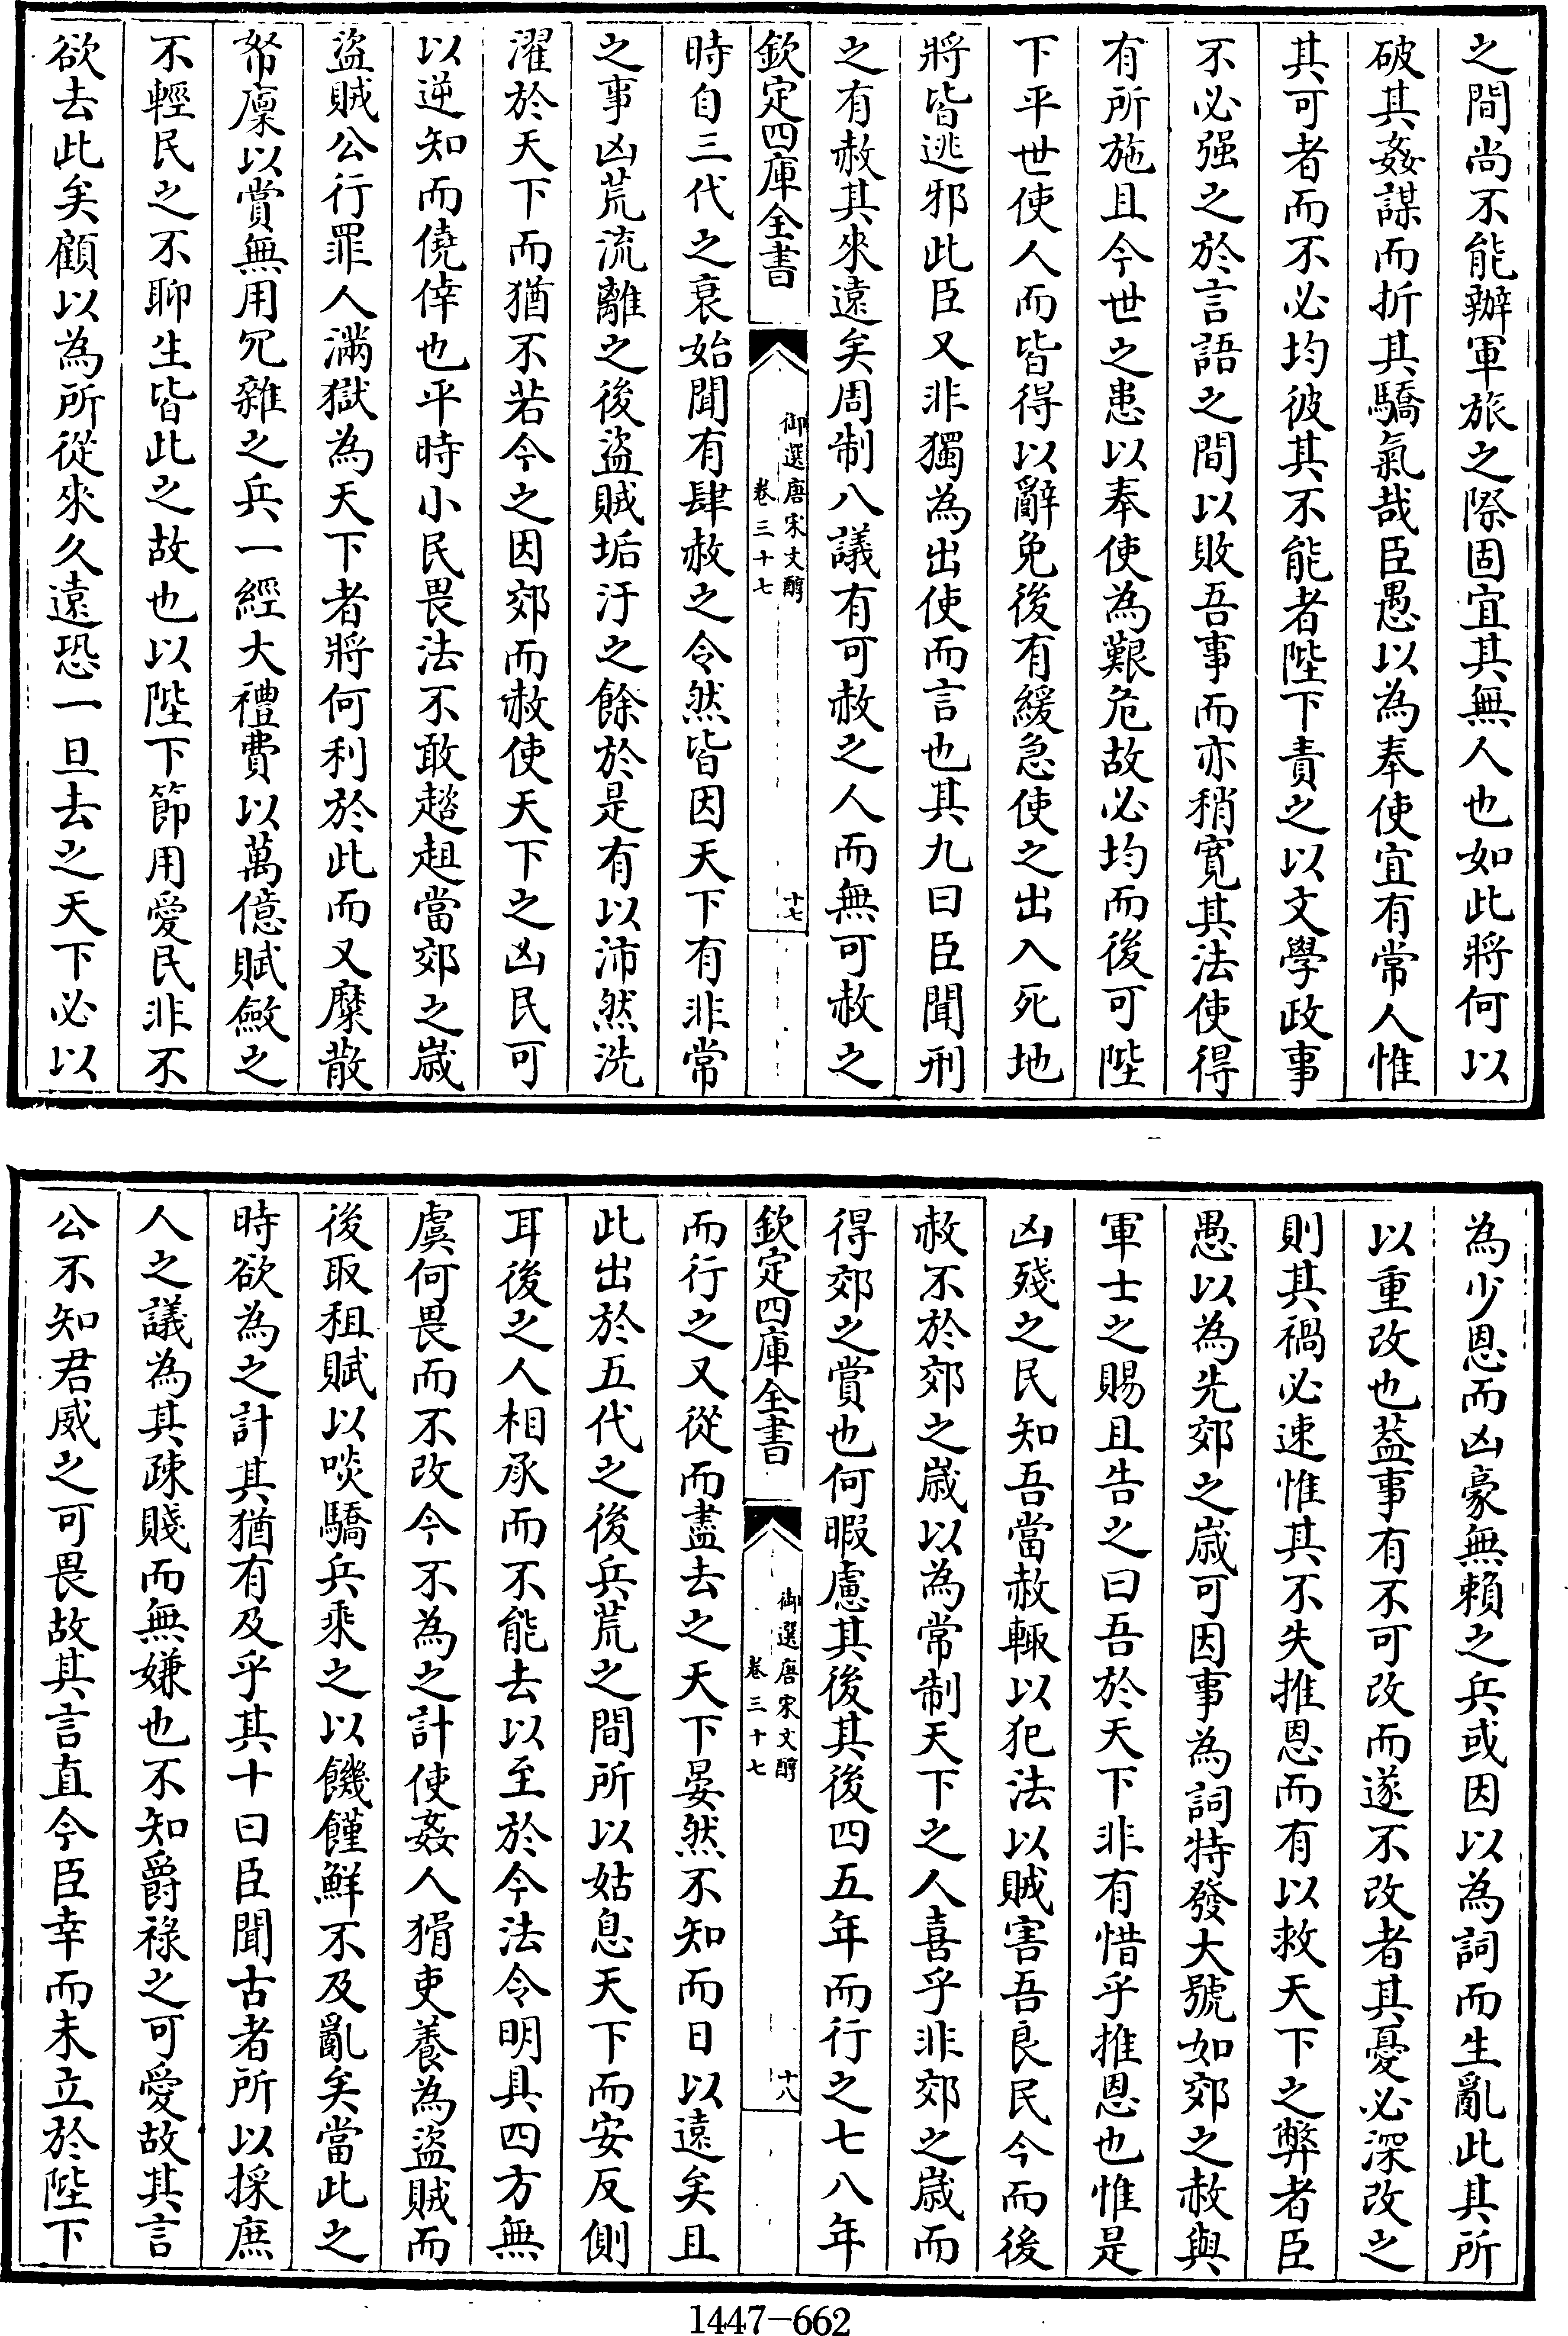 之間尚不能辦軍旅之際固宜其無人也如此將何以
破其姦謀而折其驕氣哉臣愚以為奉使宜有常人惟
其可者而不必均彼其不能者陛下責之以文學政事
不必强之於言語之間以敗吾事而亦稍寛其法使得
有所施且今世之患以奉使為艱危故必均而後可陛
下平世使人而皆得以辭免後有緩急使之出入死地
將皆逃邪此臣又非獨為出使而言也其九曰臣聞刑
之有赦其來遠矣周制八議有可赦之人而無可赦之
欽定四庫全書
御選唐宋文醇
卷三十七
十七
時自三代之衰始聞有肆赦之令然皆因天下有非常
之事凶荒流離之後盜賊垢汙之餘於是有以沛然洗
濯於天下而猶不若今之因郊而赦使天下之凶民可
以逆知而僥倖也平時小民畏法不敢趑趄當郊之歲
盜賊公行罪人滿獄為天下者將何利於此而又糜散
帑廩以賞無用冗雜之兵一經大禮費以萬億賦斂之
不輕民之不聊生皆此之故也以陛下節用愛民非不
欲去此矣顧以為所從來久遠恐一旦去之天下必以
為少恩而凶豪無賴之兵或因以為詞而生亂此其所
以重改也蓋事有不可改而遂不改者其憂必深改之
則其禍必速惟其不失推恩而有以救天下之弊者臣
愚以為先郊之歲可因事為詞特發大號如郊之赦與
軍士之賜且告之曰吾於天下非有惜乎推恩也惟是
凶殘之民知吾當赦輙以犯法以賊害吾良民今而後
赦不於郊之歲以為常制天下之人喜乎非郊之歲而
得郊之賞也何暇慮其後其後四五年而行之七八年
欽定四庫全書
御選唐宋文醇
卷三十七
十八
而行之又從而盡去之天下晏然不知而日以遠矣且
此出於五代之後兵荒之間所以姑息天下而安反側
耳後之人相承而不能去以至於今法令明具四方無
虞何畏而不改今不為之計使姦人猾吏養為盜賊而
後取租賦以啖驕兵乘之以饑饉鮮不及亂矣當此之
時欲為之計其猶有及乎其十曰臣聞古者所以採庶
人之議為其疎賤而無嫌也不知爵祿之可愛故其言
公不知君威之可畏故其言直今臣幸而未立於陛下
1447-662